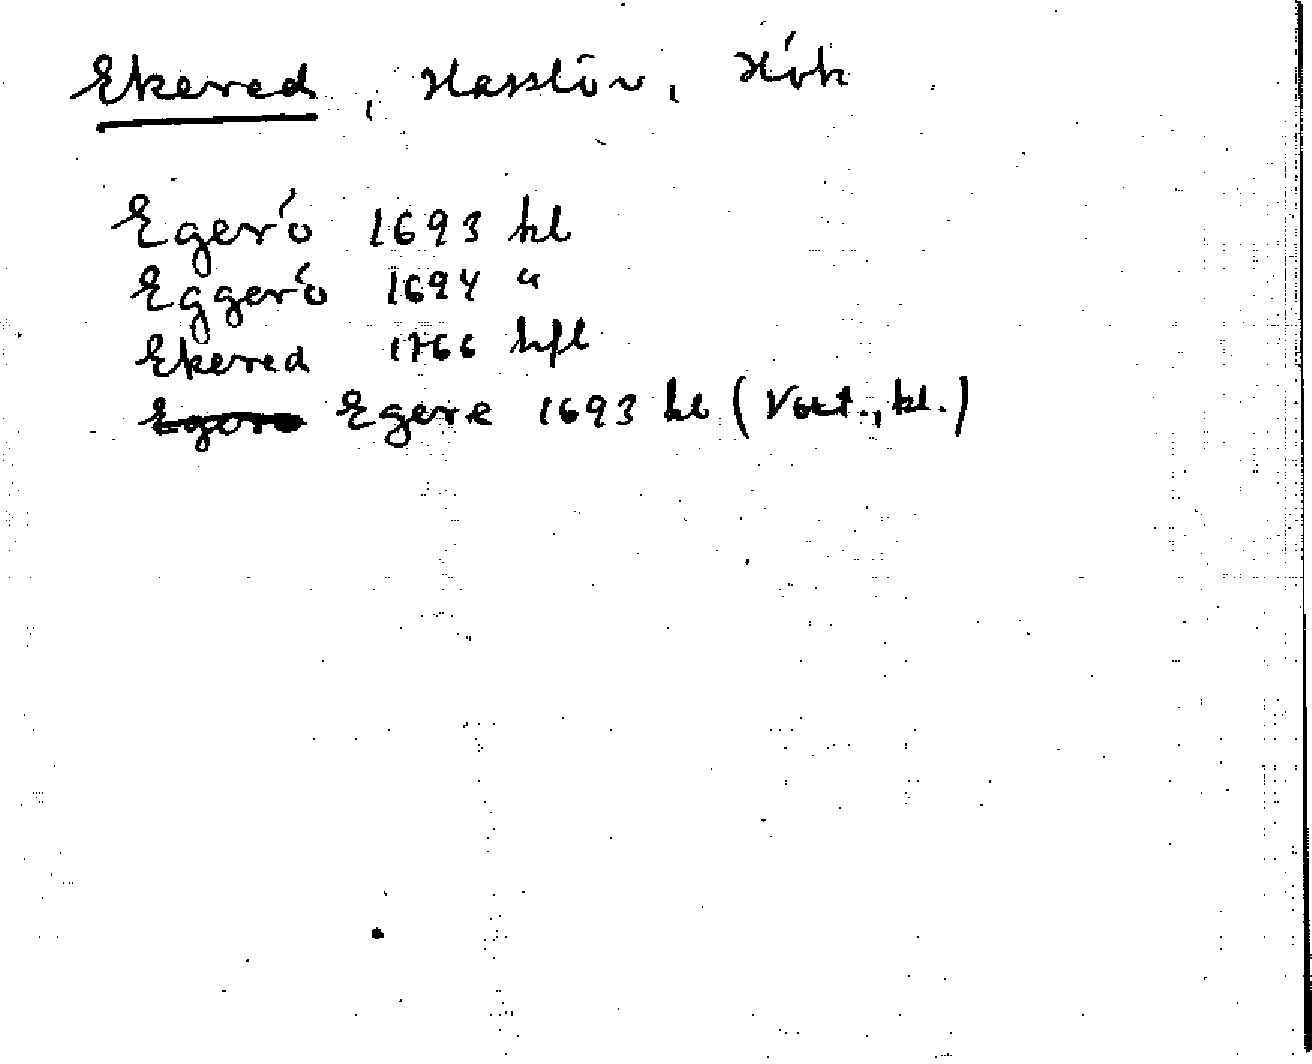 Ekered, Hasslöv, Hök
Egerö 1693 kl
Eggerö 1694 "
Ekered 1766 hfl
Egere 1693 kl (Vart., kl.)